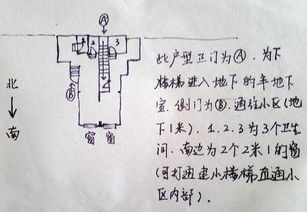 A
3
2
1
B
窗 窗
北
↓
南
此户型正门为A,为下
楼梯进入地下的半地下
室,侧门为B,通往小区(地
下1米).1.2.3为3个卫生
间.南边为2个2米1的窗
(可打通建小楼梯直通小
区内部).